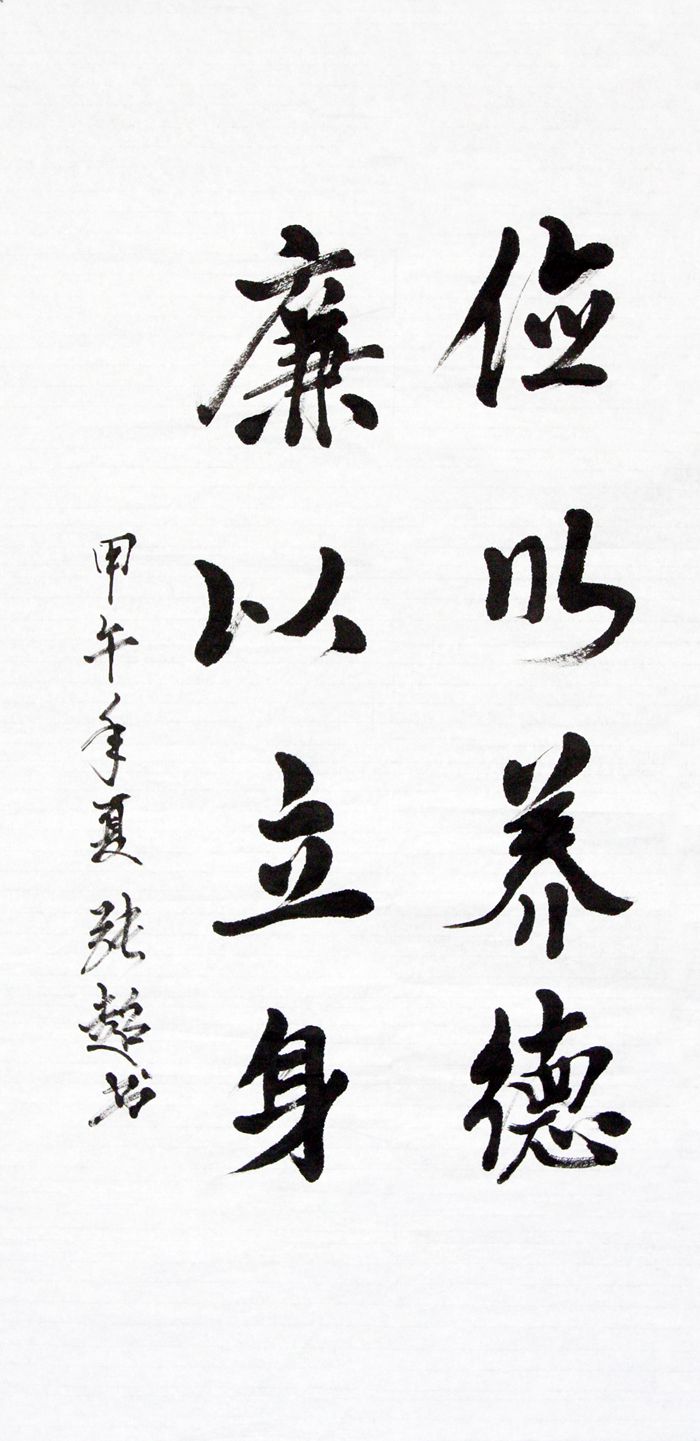 俭以养德
廉以立身
甲午年夏张超书